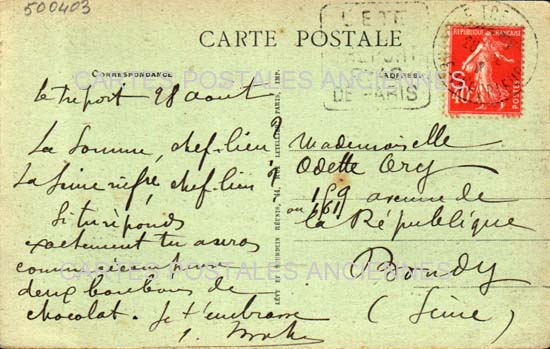 500403
CARTE POSTALE
CORRESPONDANCE
ADRESSE
L'ETE
DE PARIS
REPUBLIQUE FRANÇAISE
POSTES
40
CARTES POSTALES ANCIENNES
Le treport 28 aout
La Somme, chef-lieu?
La Seine infre, chef-lieu?
Si tu réponds
exactement tu auras
comme
deux bonbons de
chocolat. Je t'embrasse
LEVY ET NEURDEIN RÉUNIS, 44, RUE LETELLIER, PARIS, IMP.
Mademoiselle
Odette
159 avenue de
ou 161 la République
Bondy
(Seine)
CARTES POSTALES ANCIENNES